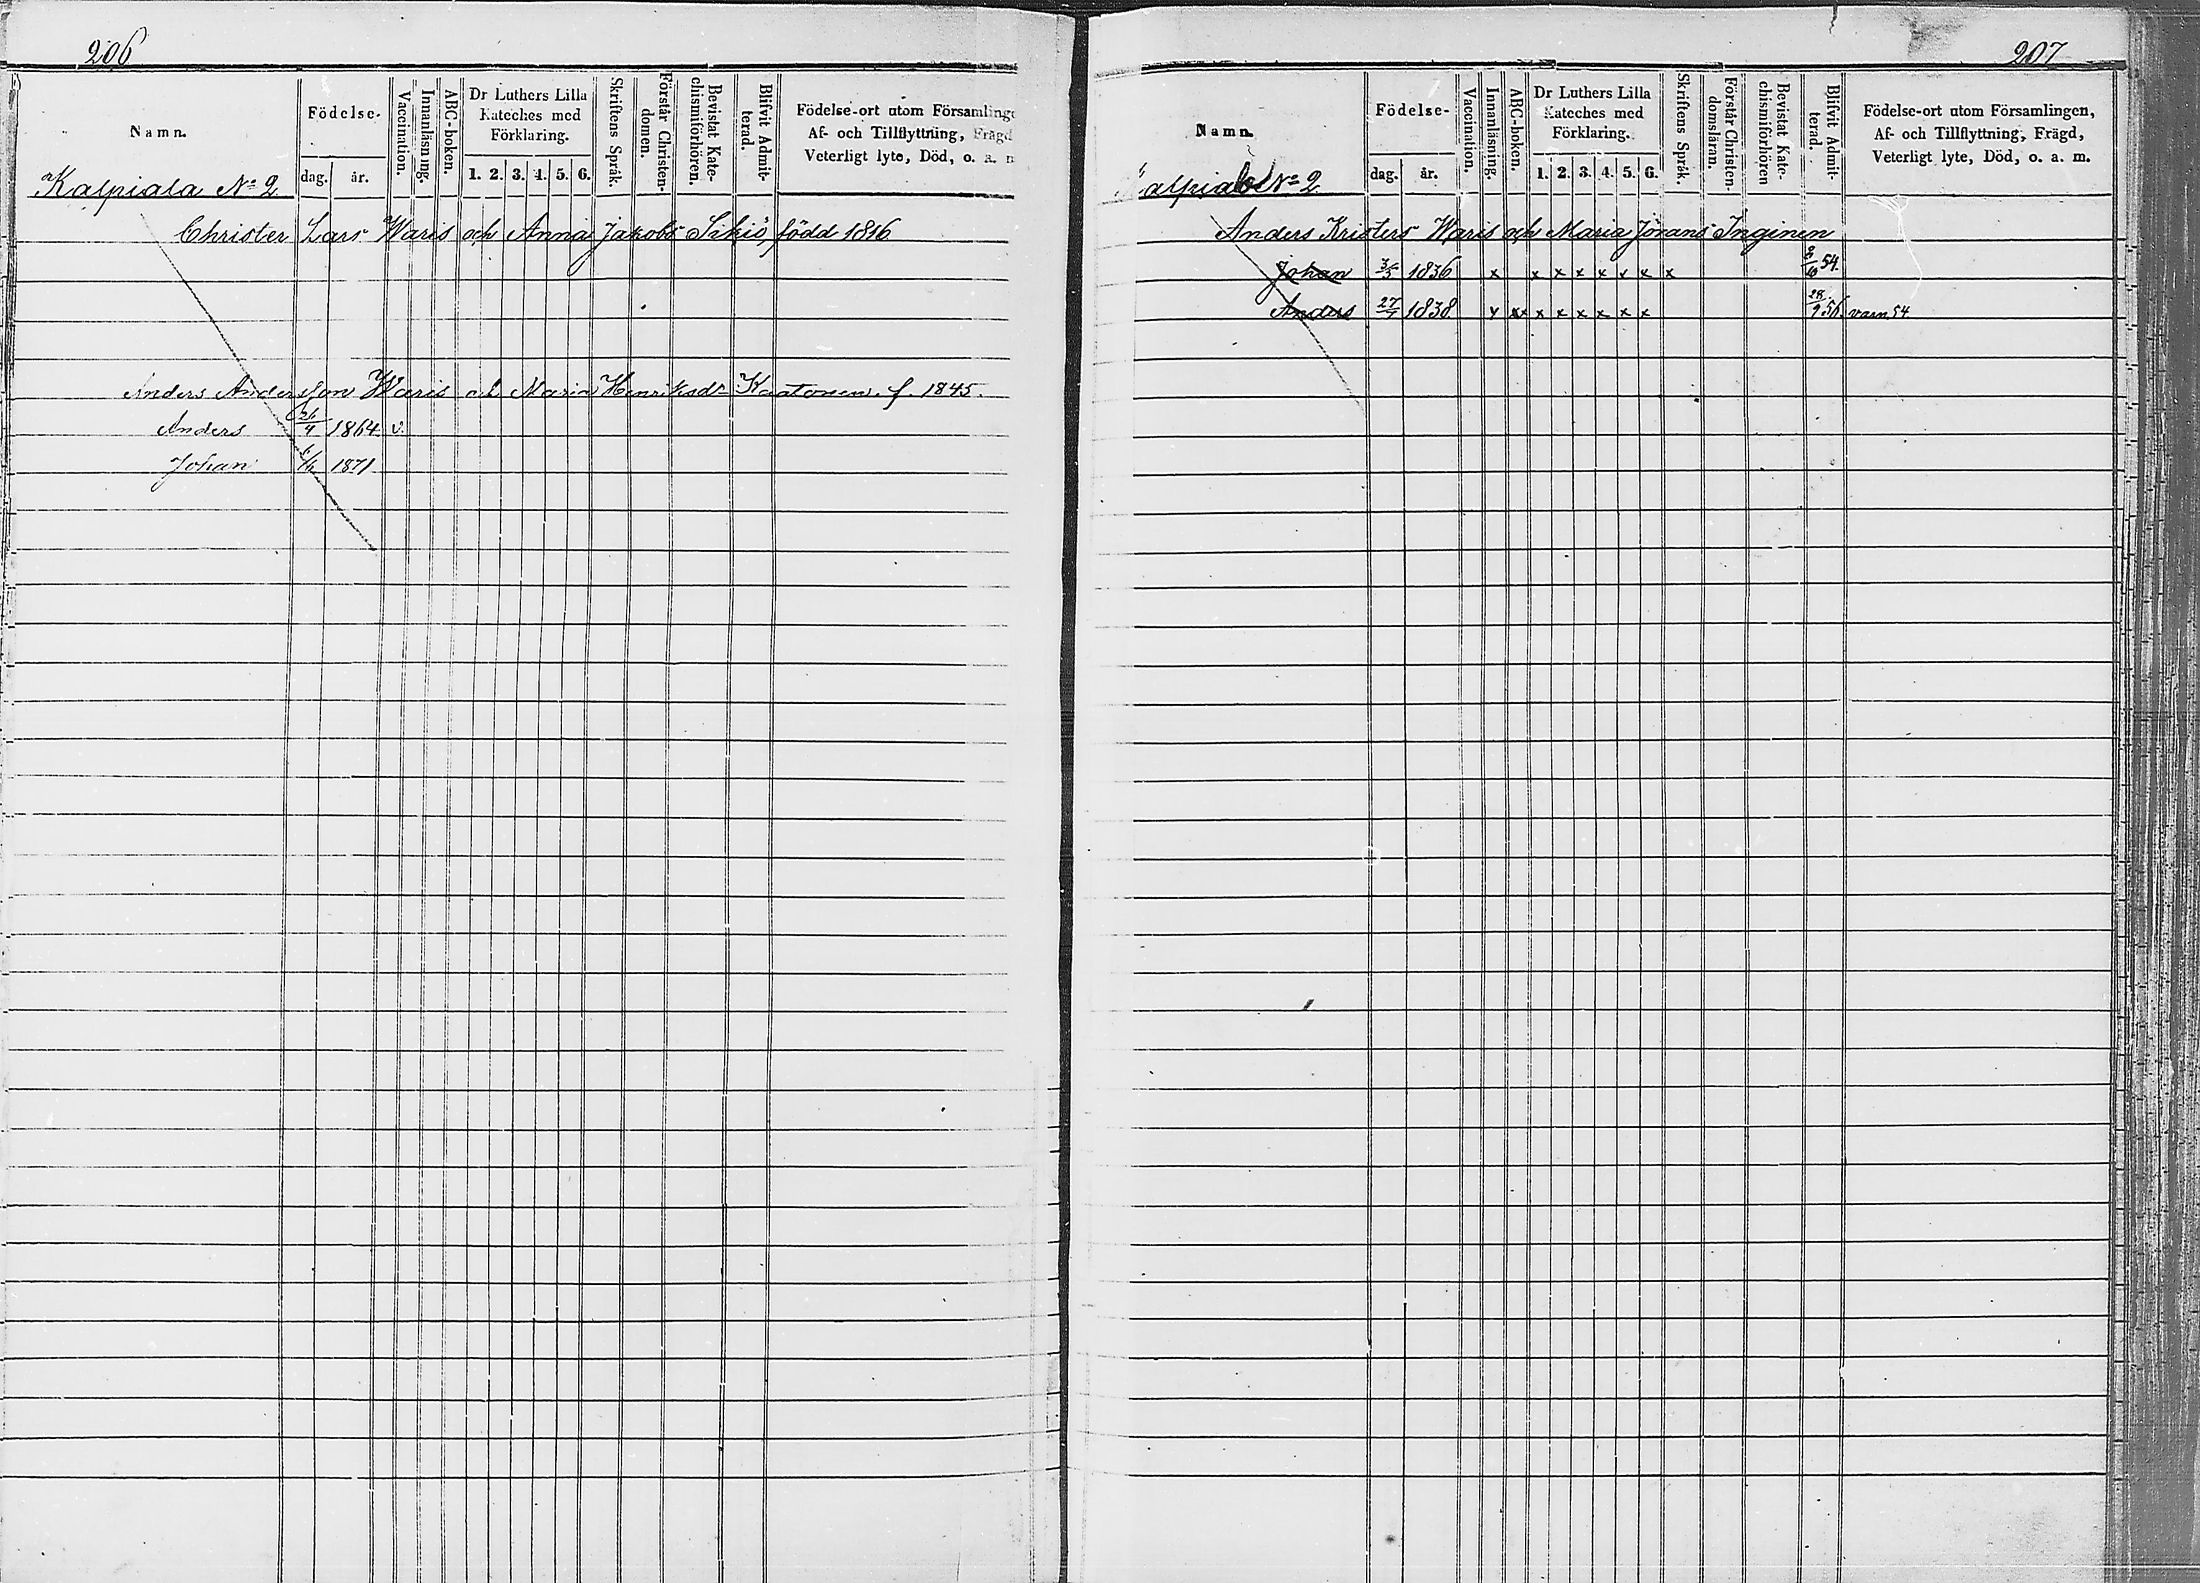 206
Namn.
Födelse-
dag. år.
Vaccination.
Innanläsning.
ABC-boken.
Dr Luthers Lilla
Kateches med
Förklaring.
1. 2. 3. 4. 5. 6.
Skriftens Språk.
Förstår Christen-
domen.
Bevistat Kate-
chismiförhören.
Blifvit Admit-
terad.
Födelse-ort utom Församlinge
Af- och Tillflyttning, Frägd
Veterligt lyte, Död, o. a. m
Kalpiala No 2
Christer Lars Waris och Anna Jakobs Sihiö, född 1816
Anders Andersson Waris och Maria Henriksdr Kaatonen. f. 1845.
Anders 26/4 1864. v.
Johan 1871
207
Namn.
Födelse-
dag. år.
Vaccination.
Innanläsning.
ABC-boken.
Dr Luthers Lilla
Kateches med
Förklaring.
1. 2. 3. 4. 5. 6.
Skriftens Språk.
Förstår Christen-
domsläran.
Bevistat Kate-
chismiförhören
Blifvit Admit-
terad.
Födelse-ort utom Församlingen,
Af- och Tillflyttning, Frägd,
Veterligt lyte, Död, o. a. m.
Kalpiala No 2
Anders Kristers Waris och Maria Jörans Inginen
Johan 3/5 1836 x x x x x x x x 54.
Anders 27/7 1838 x x x x x x x x 28/9 56. varn. 54.